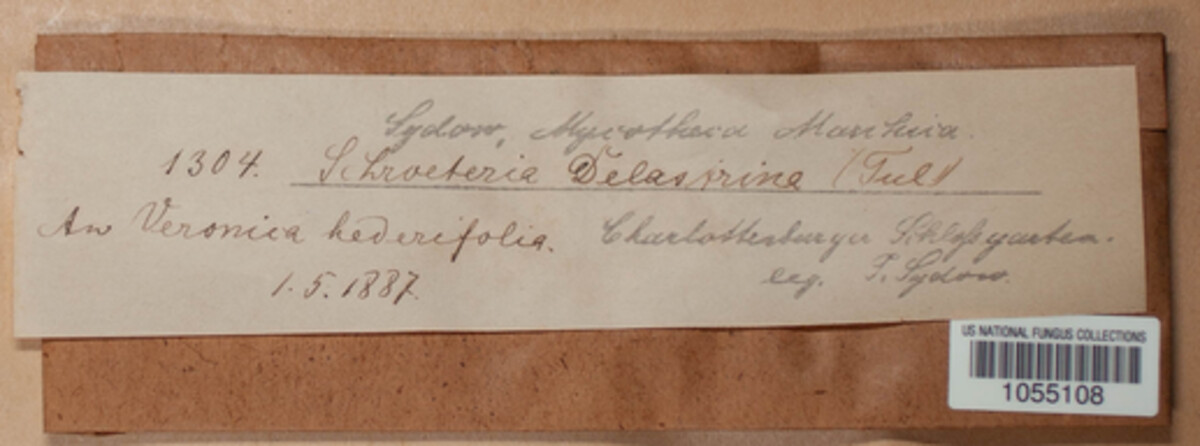 Sydow, Mycotheca Marchica.
1304. Schroeteria Delastrina (Tul)
An Veronica hederifolia. Charlottenburger Schloßgarten.
1.5.1887. leg. P. Sydow.
US NATIONAL FUNGUS COLLECTIONS
1055108